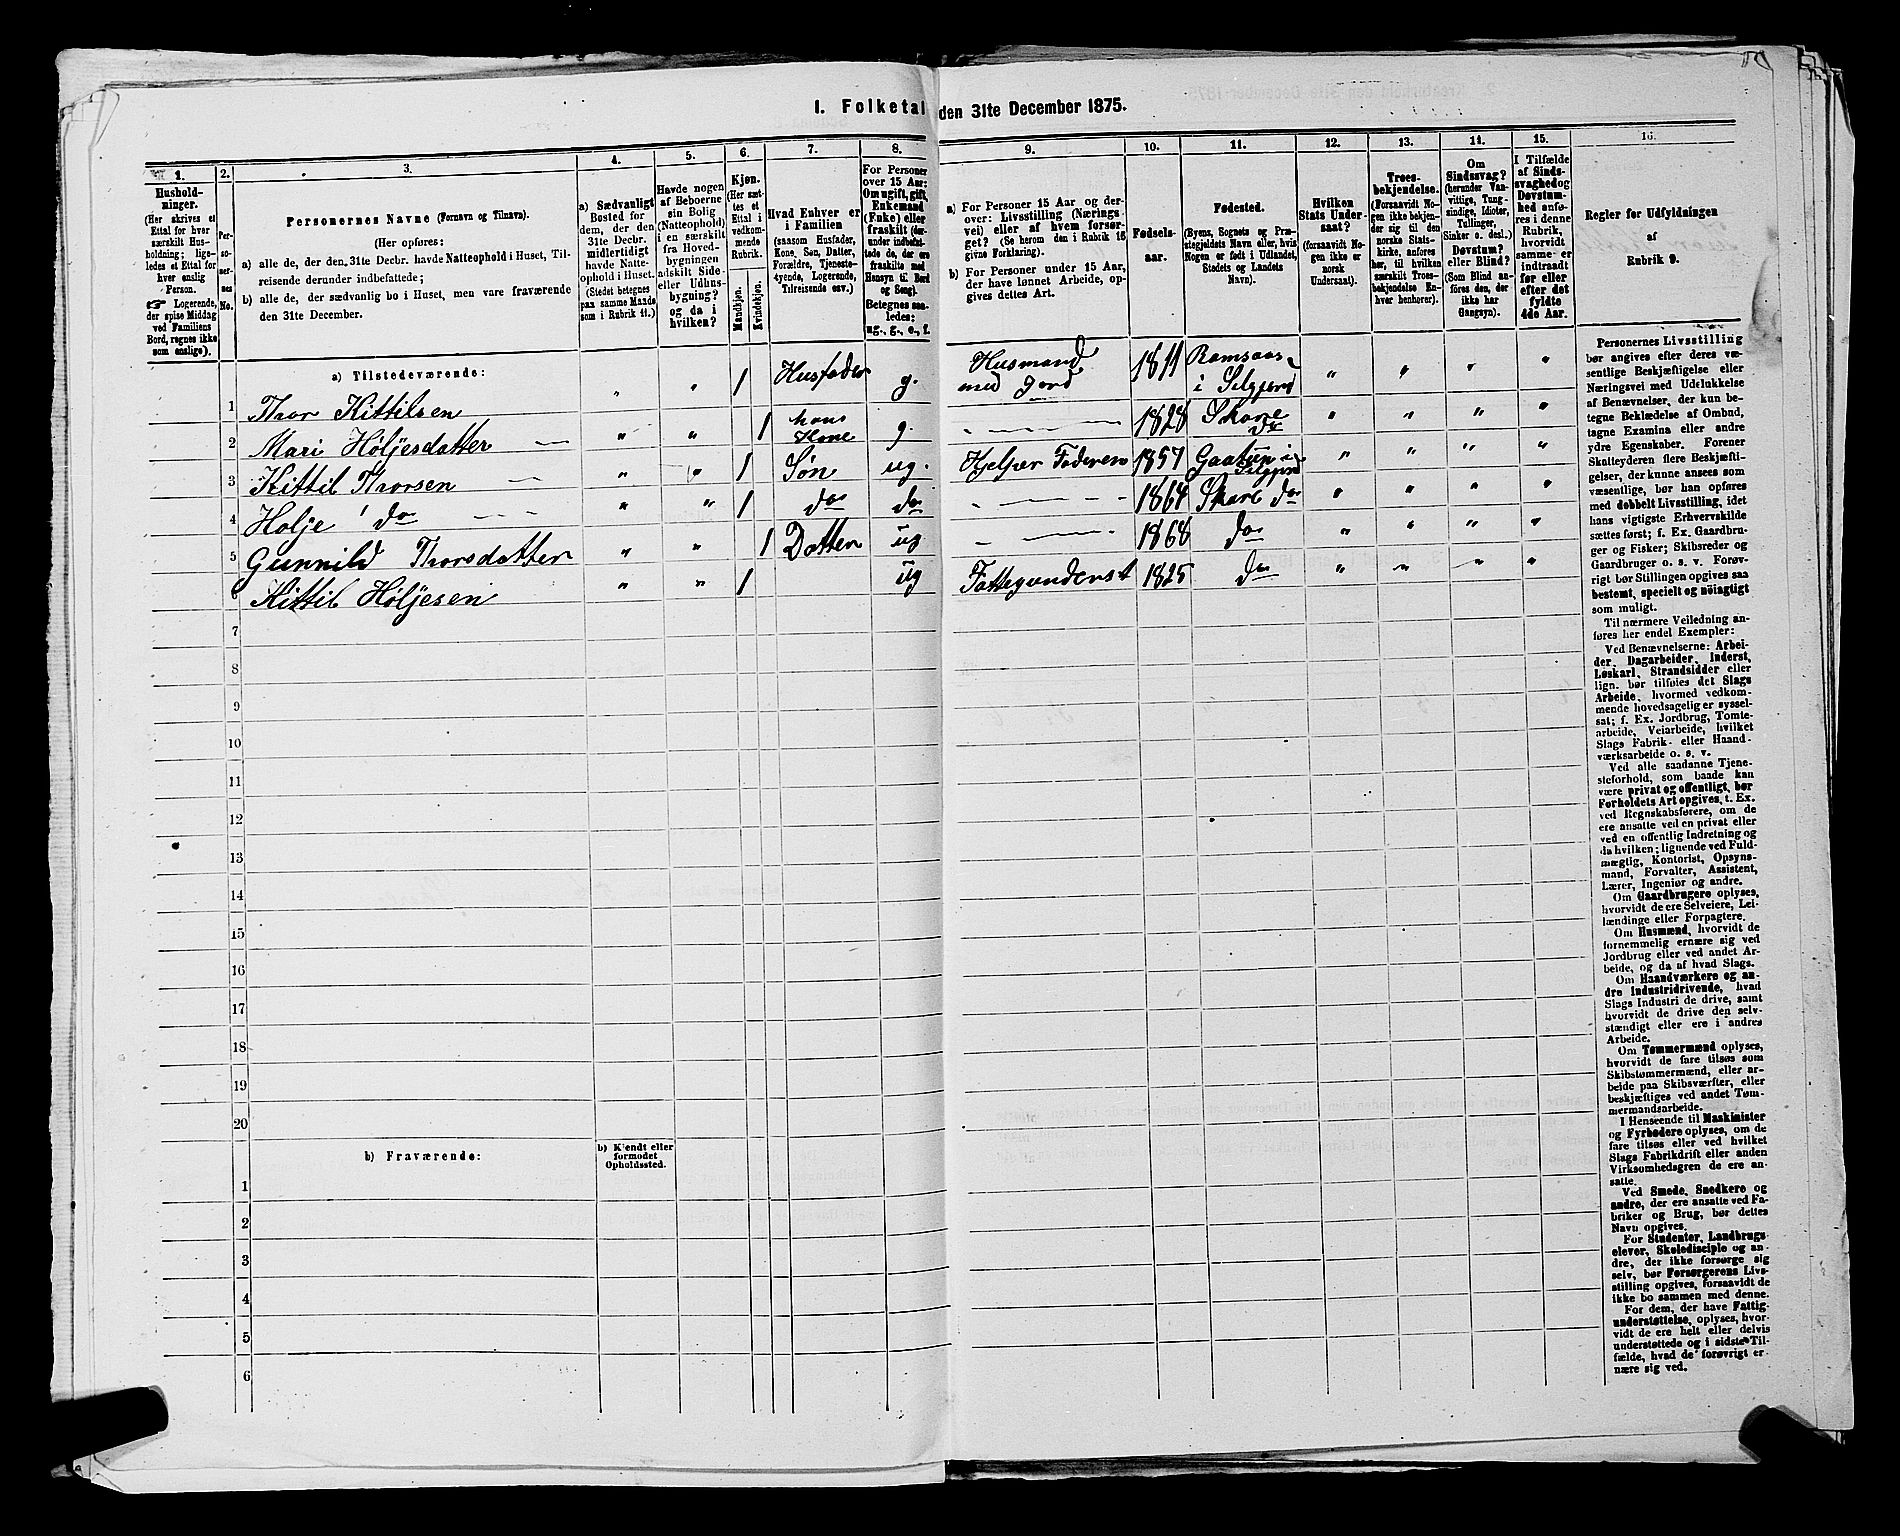 I. Folketal den 31te December 1875.
1. 2. 3. 4. 5. 6. 7. 8. 9. 10. 11. 12. 13. 14. 15. 16.
Hushold-
ninger.
(Her skrives et
Ettal for hver
særskilt Hus-
holdning; lige-
ledes et Ettal for
hver enslig
Person.
☞ Logerende,
der spise Middag
ved Familiens
Bord, regnes ikke
som enslige).
Per-
so-
ner-
nes
No.
Personernes Navne (Fornavn og Tilnavn).
(Her opføres:
a) alle de, der den 31te Decbr. havde Natteophold i Huset, Til-
reisende derunder indbefattede;
b) alle de, der sædvanlig bo i Huset, men vare fraværende
den 31te December.
a) Sædvanligt
Bosted for
dem, der den
31te Decbr.
midlertidigt
havde Natte-
ophold i Huset.
(Stedet betegnes
paa samme Maade
som i Rubrik 11.)
Havde nogen
af Beboerne
sin Bolig
(Natteophold)
i en særskilt
fra Hoved-
bygningen
adskilt Side-
eller Udhus-
bygning?
og da i
hvilken?
Kjøn.
(Her sæt-
tes et
Ettal i
vedkom-
mende
Rubrik.
Mandkjøn.
Kvindekjøn.
Hvad Enhver er
i Familien
(saasom Husfader,
Kone, Søn, Datter,
Forældre, Tjeneste-
tyende, Logerende,
Tilreisende osv.)
For Personer
over 15 Aar:
Om ugift, gift,
Enkemand
(Enke) eller
fraskilt (der-
under indbefat-
tede de, der ere
fraskilte med
Hensyn til Bord
og Seng).
Betegnes saa-
ledes:
ug., g., e., f.
a) For Personer 15 Aar og der-
over: Livsstilling (Nærings-
vei) eller af hvem forsør-
get? (Se herom den i Rubrik 16
givne Forklaring).
b) For Personer under 15 Aar,
der have lønnet Arbeide, op-
gives dettes Art.
Fødsels-
aar.
Fødested.
(Byens, Sognets og Præ-
stegjeldets Navn eller, hvis
Nogen er født i Udlandet,
Stedets og Landets
Navn).
Hvilken
Stats Under-
saat?
(forsaavidt No-
gen ikke er
norsk
Undersaat).
Troes-
bekjendelse.
(Forsaavidt No-
gen ikke bekjen-
der sig til den
norske Stats-
kirke, anføres
her, til hvilken
særskilt Troes-
bekjendelse En-
hver henhører).
Om
Sindssvag?
(herunder Van-
vittige, Tung-
sindige, Idioter,
Tullinger,
Sinker o. desl.)
Døvstum?
eller Blind?
(Som Blind an-
føres den, der
ikke har
Gangsyn).
I Tilfælde
af Sinds-
svaghed og
Døvstum-
hed anfø-
res i denne
Rubrik,
hvorvidt
samme er
indtraadt
før eller
efter det
fyldte
4de Aar.
Regler for Udfyldningen
af
Rubrik 9.
a) Tilstedeværende:
1 Thor Kittilsen " " 1 Husfader g. Husmand med Jord 1811 Ramsaas i Selgjord " " " "
2 Mari Høljesdatter " " 1 hans Kone g. " 1828 Skore do " " " "
3 Kittil Thorsen " " 1 Søn ug. Hjelper Faderen 1857 Gaatun i Selgjord " " " "
4 Holje do " " 1 do do " 1864 Skore do " " " "
5 Gunnild Thorsdatter " " 1 Datter ug " 1868 do " " " "
6 Kittil Høljesen " " 1 ug Fattigunderst 1825 do " " " "
7
8
9
10
11
12
13
14
15
16
17
18
19
20
b) Fraværende:
b) Kjendt eller
formodet
Opholdssted.
1
2
3
4
5
6
Personernes Livsstilling
bør angives efter deres væ-
sentlige Beskjæftigelse eller
Næringsvei med Udelukkelse
af Benævnelser, der kun be-
tegne Beklædelse af Ombud,
tagne Examina eller andre
ydre Egenskaber. Forener
Skatteyderen flere Beskjæfti-
gelser, der kunne ansees som
væsentlige, bør han opføres
med dobbelt Livsstilling, idet
hans vigtigste Erhvervskilde
sættes først; f. Ex. Gaardbru-
ger og Fisker; Skibsreder og
Gaardbruger o. s. v. Forøv-
rigt bør Stillingen opgives saa
bestemt, specielt og nøiagtigt
som muligt.
Til nærmere Veiledning an-
føres her endel Exempler:
Ved Benævnelserne: Arbei-
der, Dagarbeider, Inderst,
Løskarl, Strandsidder eller
lign. bør tilføies det Slags
Arbeide, hvormed vedkom-
mende hovedsagelig er syssel-
sat; f. Ex. Jordbrug, Tomte-
arbeide, Veiarbeide, hvilket
Slags Fabrik- eller Haand-
værksarbeide o. s. v.
Ved alle saadanne Tjene-
steforhold, som baade kan
være privat og offentligt, bør
Forholdets Art opgives, t. Ex.
ved Regnskabsførere, om de
ere ansatte ved en privat eller
ved en offentlig Indretning og
da hvilken; lignende ved Fuld-
mægtig, Kontorist, Opsyns-
mand, Forvalter, Assistent,
Lærer, Ingeniør og andre.
Om Gaardbrugere oplyses,
hvorvidt de ere Selveiere, Lei-
lændinge eller Forpagtere.
Om Husmænd, hvorvidt de
fornemmelig ernære sig ved
Jordbrug eller ved andet Ar-
beide, og da af hvad Slags.
Om Haandværkere og an-
dre Industridrivende, hvad
Slags Industri de drive, samt
hvorvidt de drive den selv-
stændigt eller ere i andres
Arbeide.
Om Tømmermænd oplyses,
hvorvidt de fare tilsøs som
Skibstømmermænd, eller ar-
beide paa Skibsværfter, eller
beskjæftiges ved andet Tøm-
mermandsarbeide.
I Henseende til Maskinister
og Fyrbødere oplyses, om de
fare tilsøs eller ved hvilket
Slags Fabrikdrift eller anden
Virksomhedsgren de ere an-
satte.
Ved Smede, Snedkere og
andre, der ere ansatte ved Fa-
briker og Brug, bør dettes
Navn opgives.
For Studenter, Landbrugs-
elever, Skoledisciple og an-
dre, der ikke forsørge sig
selv, bør Forsørgerens Livs-
stilling opgives, forsaavidt de
ikke bo sammen med denne.
For dem, der have Fattig-
understøttelse, oplyses, hvor-
vidt de ere helt eller delvis
understøttede og i sidste Til-
fælde, hvad de forøvrigt er-
nære sig ved.